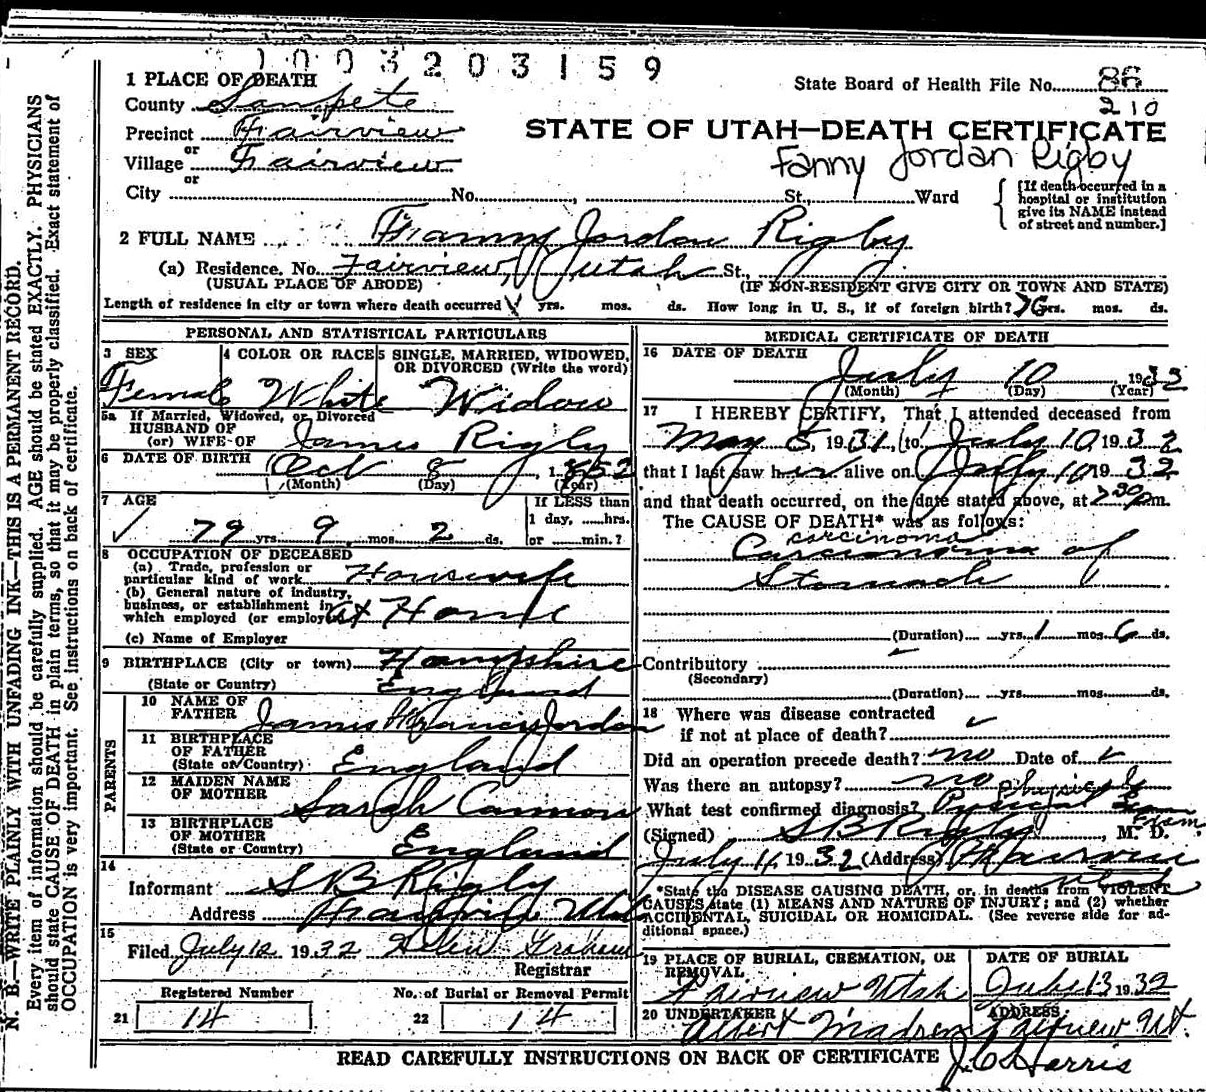 1003203159
State Board of Health File No. 86
210
1 PLACE OF DEATH
County Sanpete
Precinct Fairview
or
Village Fairview
or
City No. St., Ward
STATE OF UTAH—DEATH CERTIFICATE
Fanny Jordan Rigby
[If death occurred in a
hospital or institution
give its NAME instead
of street and number.]
2 FULL NAME Fanny Jordon Rigby
(a) Residence. No. Fairview, Utah St.,
(USUAL PLACE OF ABODE) (IF NON-RESIDENT GIVE CITY OR TOWN AND STATE)
Length of residence in city or town where death occurred yrs. mos. ds. How long in U. S., if of foreign birth? 76 yrs. mos. ds.
PERSONAL AND STATISTICAL PARTICULARS
3 SEX 4 COLOR OR RACE 5 SINGLE, MARRIED, WIDOWED,
OR DIVORCED (Write the word)
Female White Widow
5a If Married, Widowed, or Divorced
HUSBAND OF
(or) WIFE OF James Rigby
6 DATE OF BIRTH Oct 8, 1852
(Month) (Day) (Year)
7 AGE If LESS than
1 day, hrs.
79 yrs. 9 mos. 2 ds. or min.?
8 OCCUPATION OF DECEASED
(a) Trade, profession or
particular kind of work Housewife
(b) General nature of industry,
business, or establishment in
which employed (or employer) at Home
(c) Name of Employer
9 BIRTHPLACE (City or town) Hampshire
(State or Country) England
PARENTS
10 NAME OF
FATHER James Francis Jordon
11 BIRTHPLACE
OF FATHER
(State or Country) England
12 MAIDEN NAME
OF MOTHER Sarah Cannon
13 BIRTHPLACE
OF MOTHER
(State or Country) England
14
Informant S B Rigby
Address Fairview Utah
15
Filed July 12 1932 Helen Graham
Registrar
Registered Number No. of Burial or Removal Permit
21 14 22 14
MEDICAL CERTIFICATE OF DEATH
16 DATE OF DEATH
July 10 1932
(Month) (Day) (Year)
17 I HEREBY CERTIFY, That I attended deceased from
May 5, 1931, to July 10 1932
that I last saw her alive on July 10 1932
and that death occurred, on the date stated above, at 7 30 pm.
The CAUSE OF DEATH* was as follows:
carcinoma
Carcinoma of
Stomach
(Duration) yrs. 1 mos. 6 ds.
Contributory
(Secondary)
(Duration) yrs. mos. ds.
18 Where was disease contracted
if not at place of death?
Did an operation precede death? no Date of
Was there an autopsy? no
What test confirmed diagnosis? Physical Exam
(Signed) S B Rigby, M. D.
July 11 1932 (Address) Fairview
Utah
*State the DISEASE CAUSING DEATH, or, in deaths from VIOLENT
CAUSES state (1) MEANS AND NATURE OF INJURY; and (2) whether
ACCIDENTAL, SUICIDAL OR HOMICIDAL. (See reverse side for ad-
ditional space.)
19 PLACE OF BURIAL, CREMATION, OR
REMOVAL
Fairview Utah
DATE OF BURIAL
July 13 1932
20 UNDERTAKER ADDRESS
Albert Madsen Fairview Ut.
READ CAREFULLY INSTRUCTIONS ON BACK OF CERTIFICATE
J. C. Harris
N. B.—WRITE PLAINLY WITH UNFADING INK—THIS IS A PERMANENT RECORD.
Every item of information should be carefully supplied. AGE should be stated EXACTLY. PHYSICIANS
should state CAUSE OF DEATH in plain terms, so that it may be properly classified. Exact statement of
OCCUPATION is very important. See instructions on back of certificate.